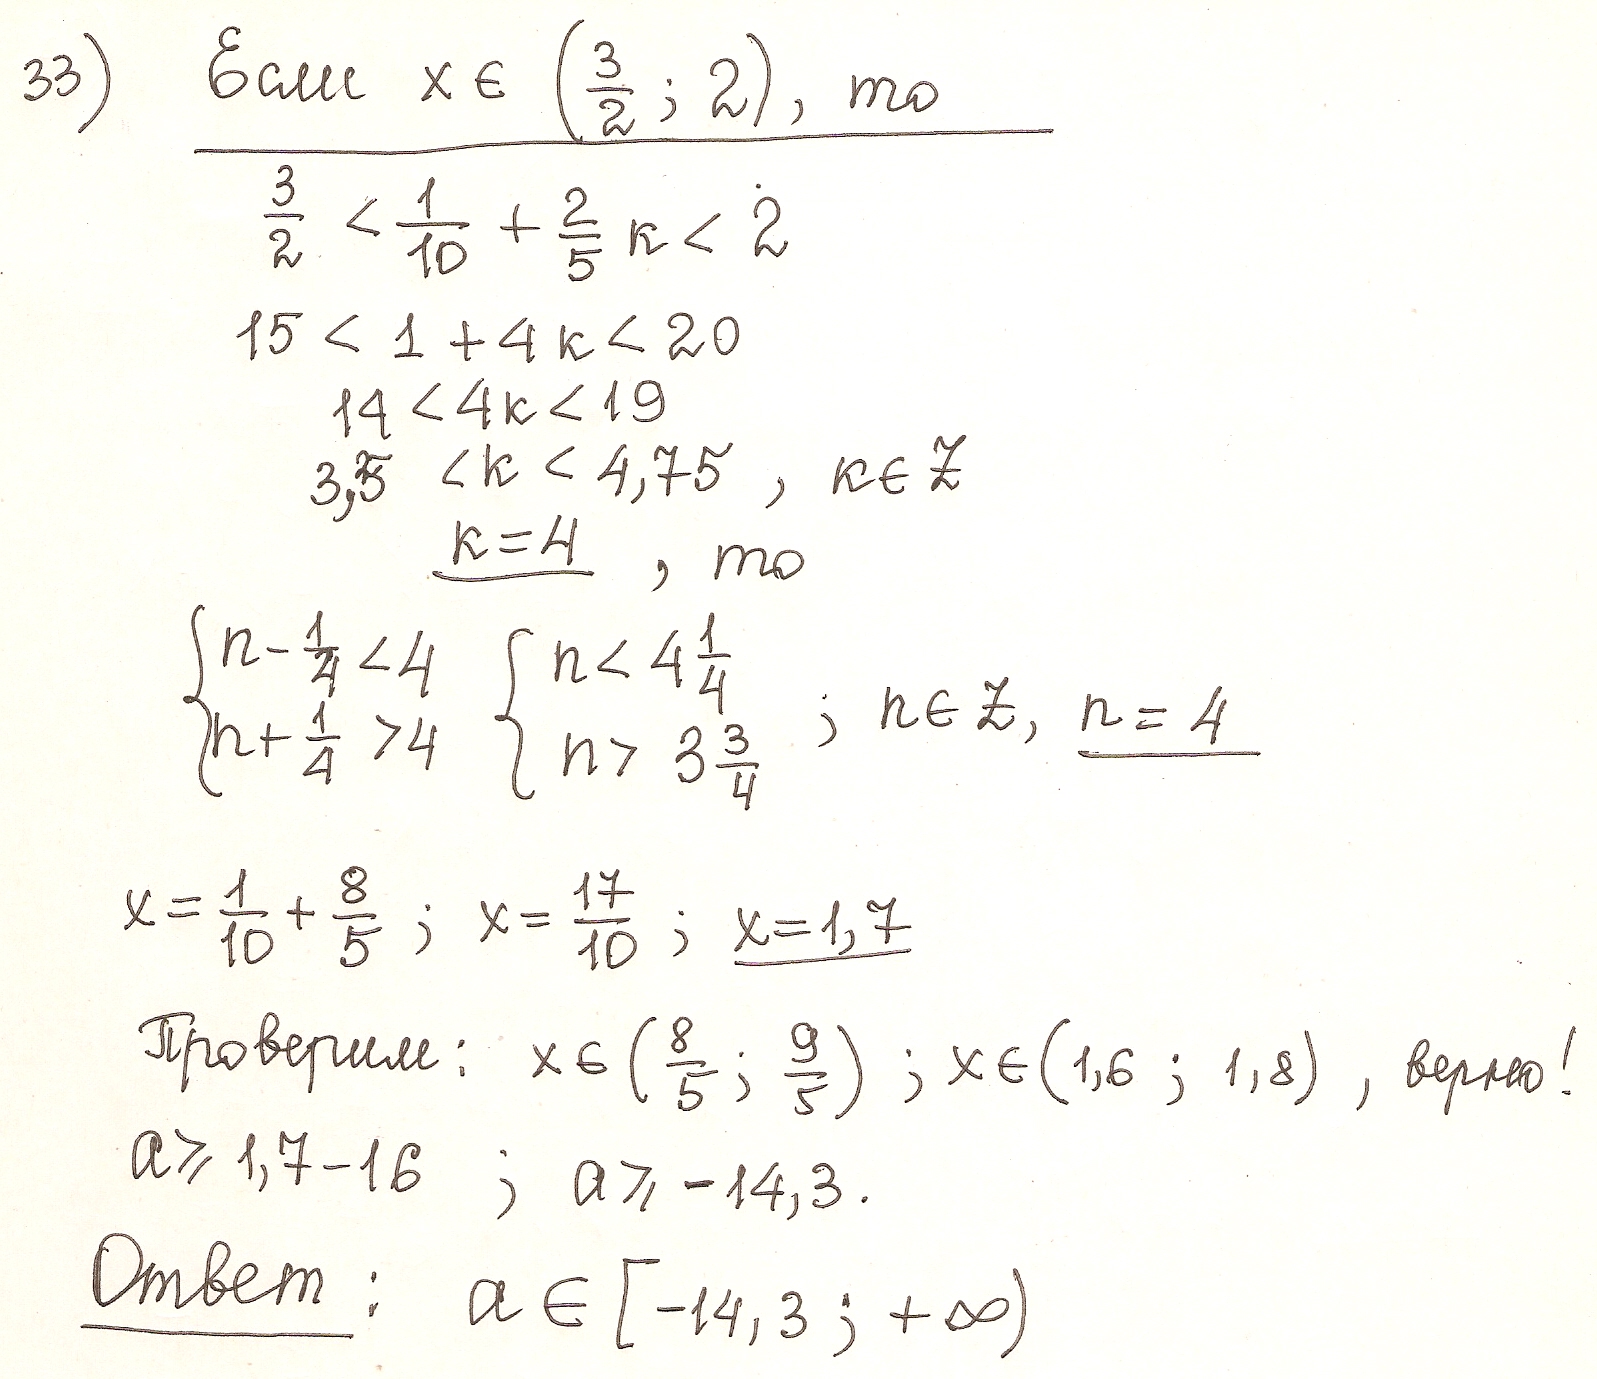 33) Если x ∈ (3/2 ; 2), то
3/2 < 1/10 + 2/5 к < 2
15 < 1 + 4к < 20
14 < 4к < 19
3,5 < к < 4,75 , к ∈ Z
к = 4 , то
{ n - 1/4 < 4 { n < 4 1/4
{ n + 1/4 > 4 { n > 3 3/4 ; n ∈ Z, n = 4
x = 1/10 + 8/5 ; x = 17/10 ; x = 1,7
Проверим: x ∈ (8/5 ; 9/5) ; x ∈ (1,6 ; 1,8) , верно!
a ⩾ 1,7 - 16 ; a ⩾ -14,3.
Ответ: a ∈ [-14,3 ; +∞)